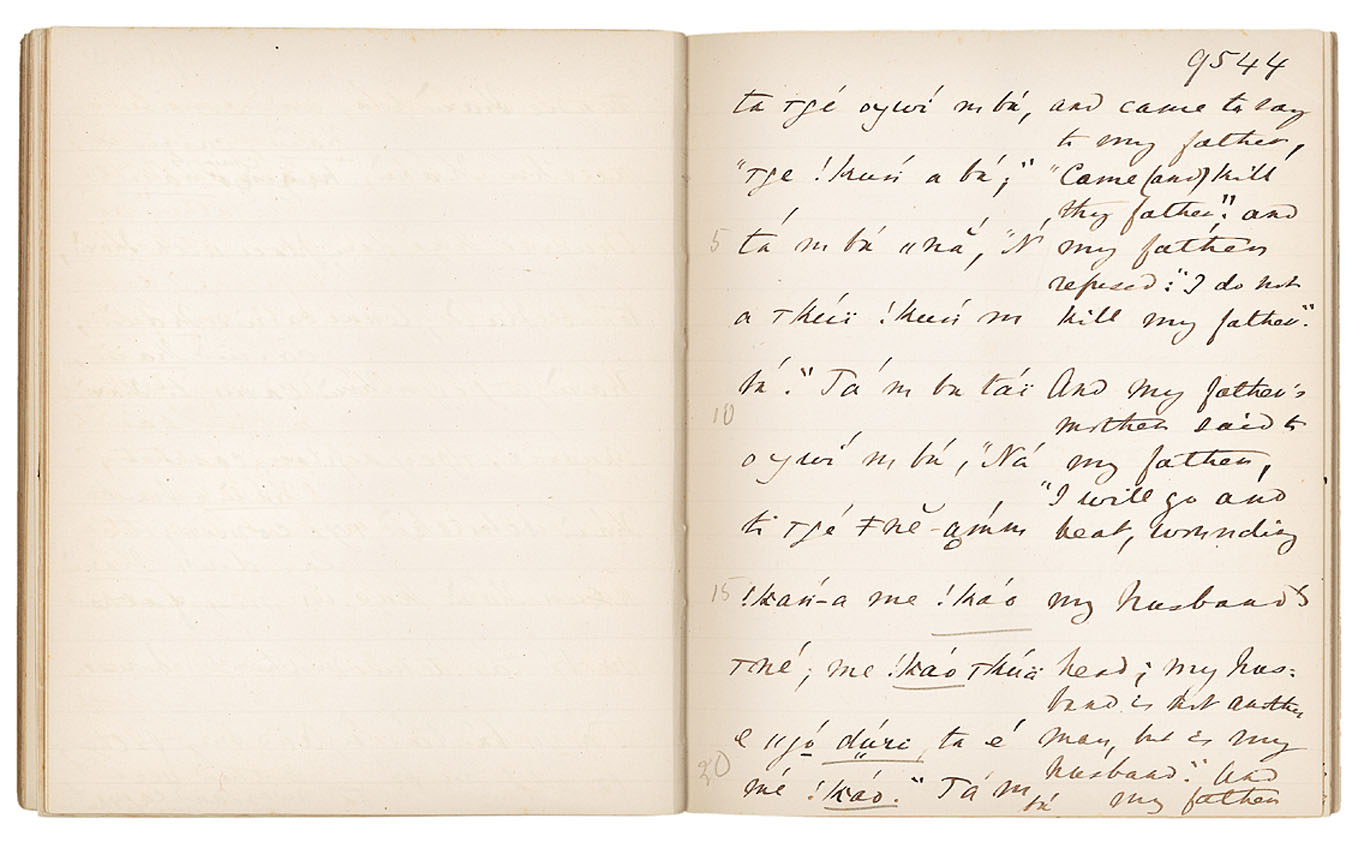 9544
ta τgé oywí m bá, and came to say
to my father,
"τge !kuń a bá;" "Come (and) kill
thy father": and
5 tá m bá "nǎ, "Ń my father
refused: "I do not
a τkúï !kuń m kill my father".
bá." Tá m ba táï And my father's
10 mother said to
oywí m bá, "Ná my father,
"I will go and
ti τgé ǂně-ạmm beat, wounding
15 !kań-a me !káo my husband's
τné; me !káo τkúï head; my hus=
band is not another
e "gó dúri, ta é man, but is my
20 husband." And
mé !káo." Tá m bá my father